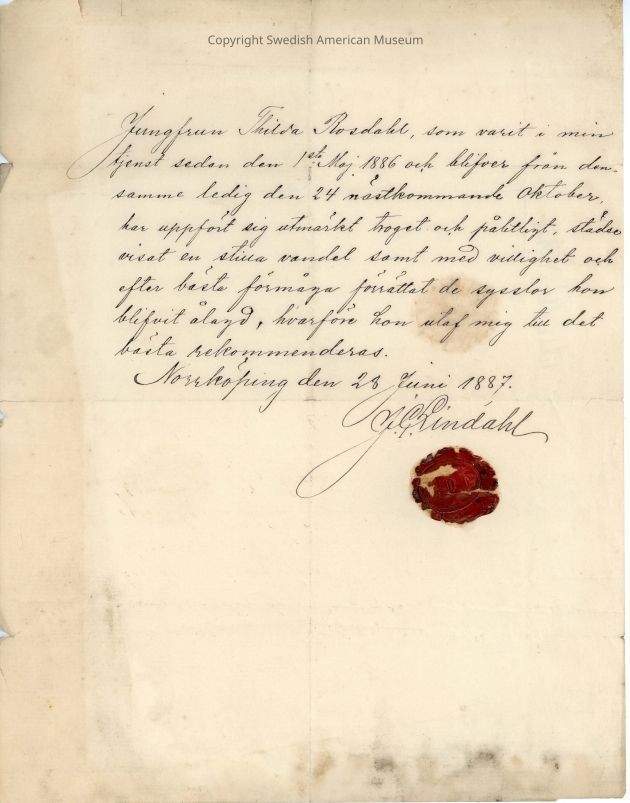 Copyright Swedish American Museum
Jungfrun Thilda Rosdahl, som varit i min
tjenst sedan den 1sta Maj 1886 och blifver från den-
samme ledig den 24 nästkommande Oktober,
har uppfört sig utmärkt troget och pålitligt, städse
visat en stilla vandel samt med villighet och
efter bästa förmåga förrättat de sysslor hon
blifvit ålagd, hvarföre hon utaf mig till det
bästa rekommenderas.
Norrköping den 28 Juni 1887.
J. G. Lindahl